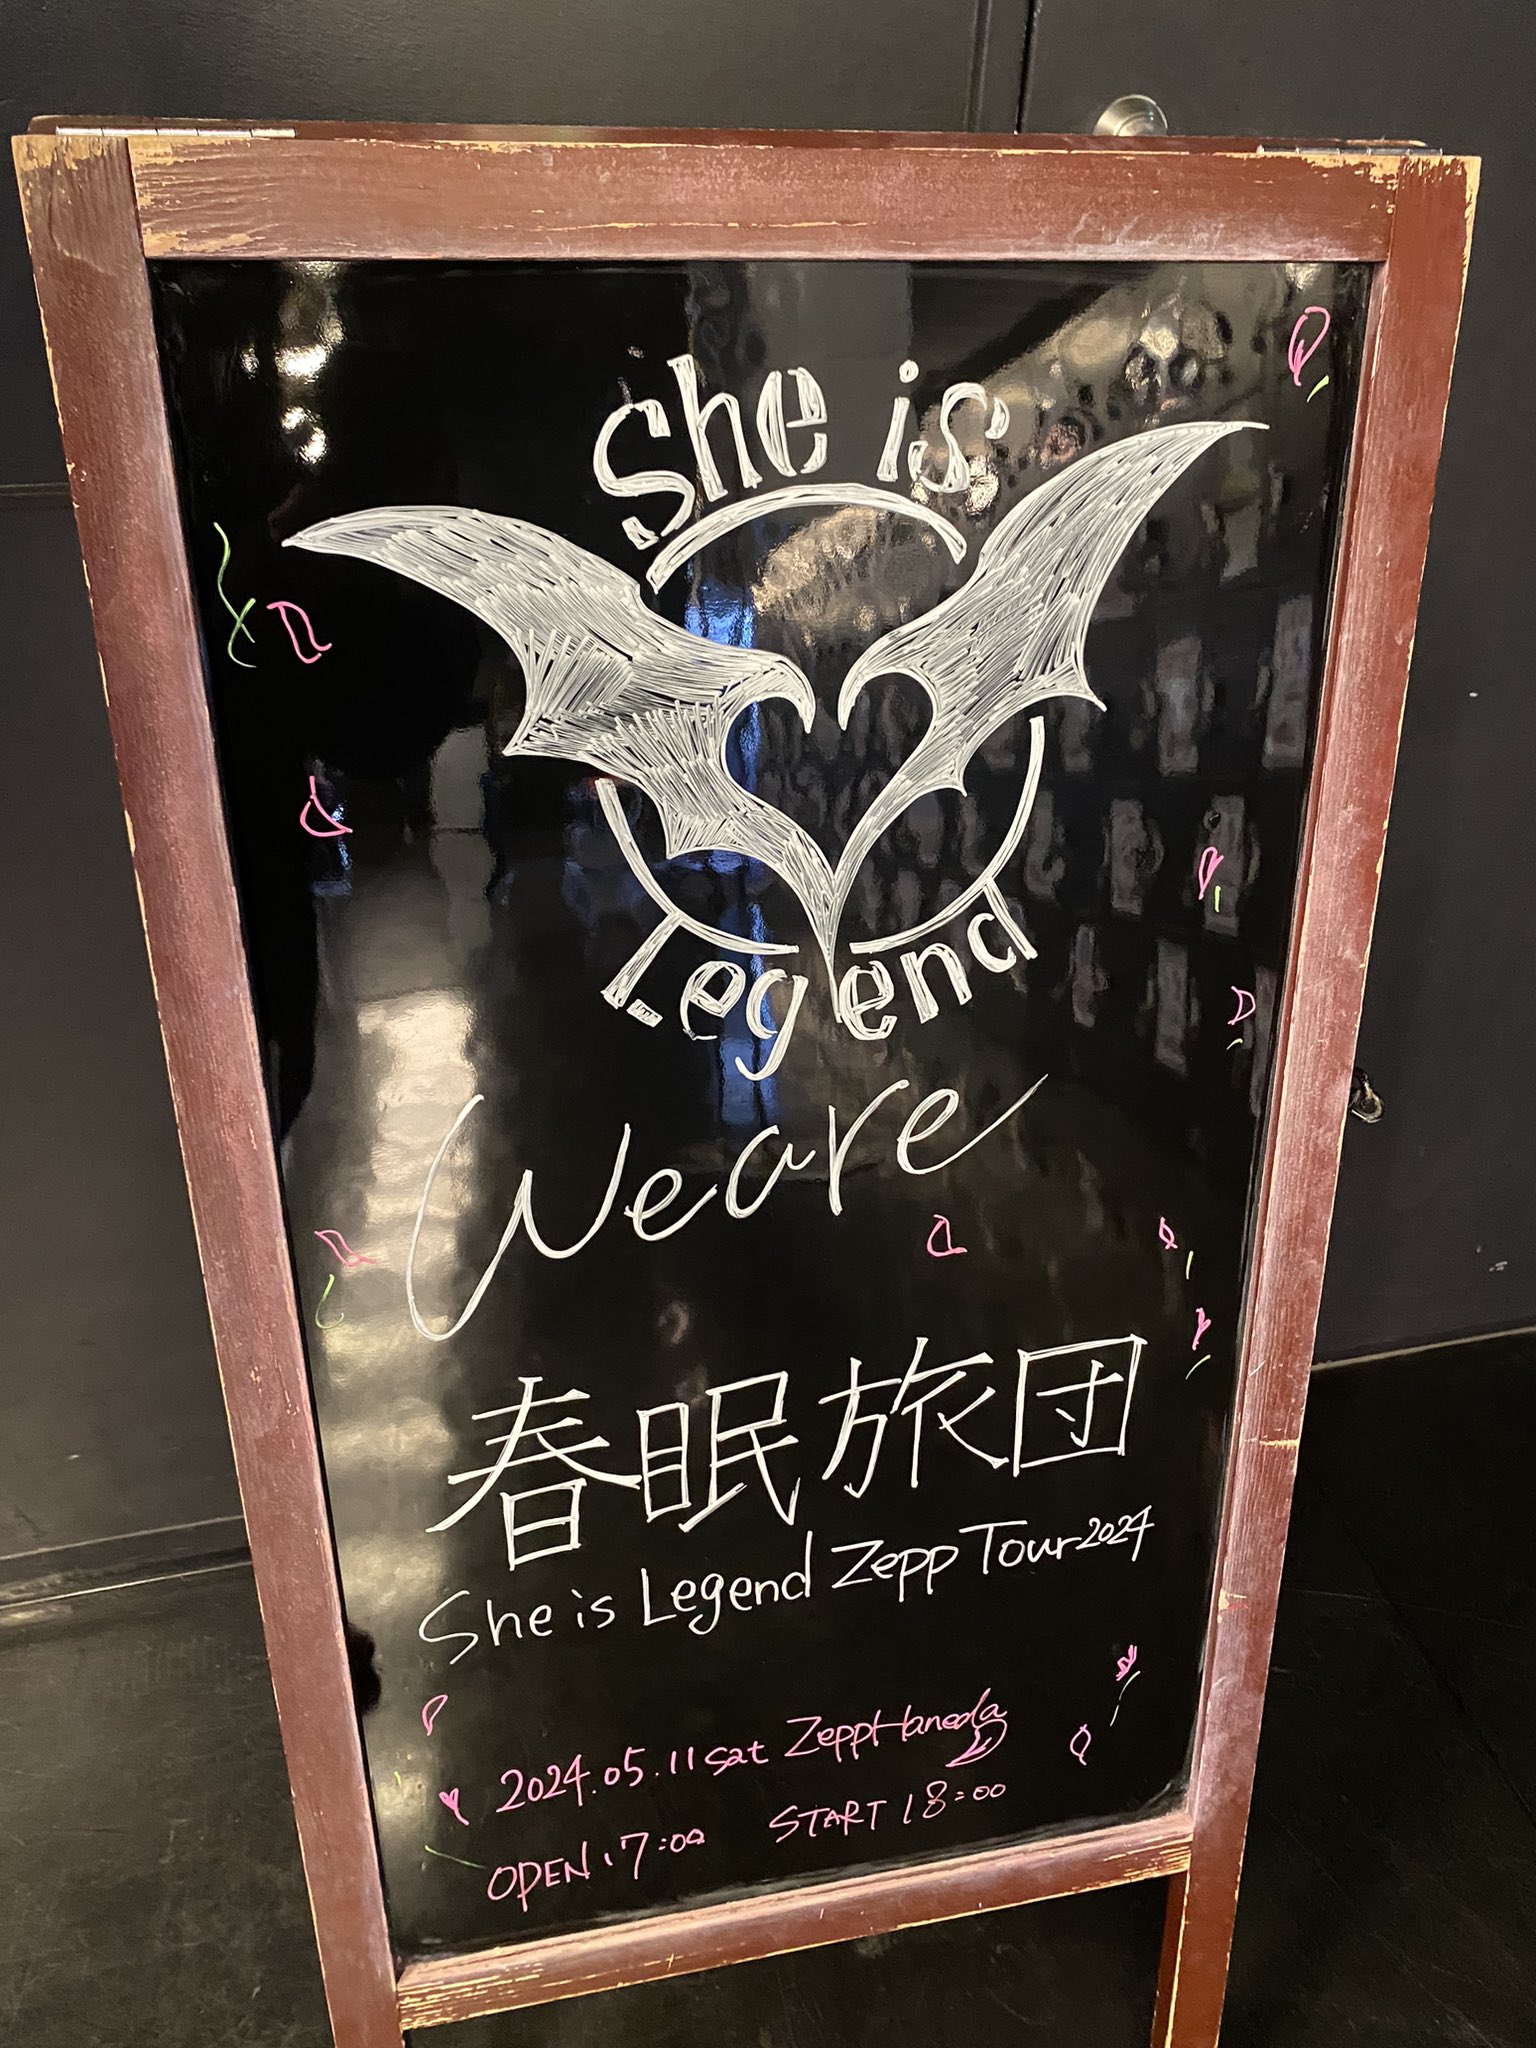 She is
Legend
We are
春眠旅団
She is Legend Zepp Tour 2024
2024.05.11 sat Zepp Haneda
OPEN 17:00 START 18:00